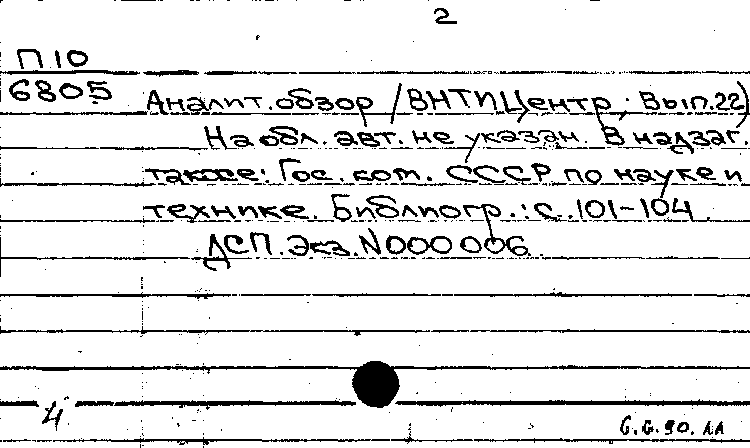 2
П10
6805 Аналит. обзор / ВНТИЦентр; Вып. 22)
На обл. авт. не указан. В надзаг.
также: Гос. ком. СССР по науке и
технике. Библиогр.: с. 101-104.
ДСП. Экз. N000006.
4